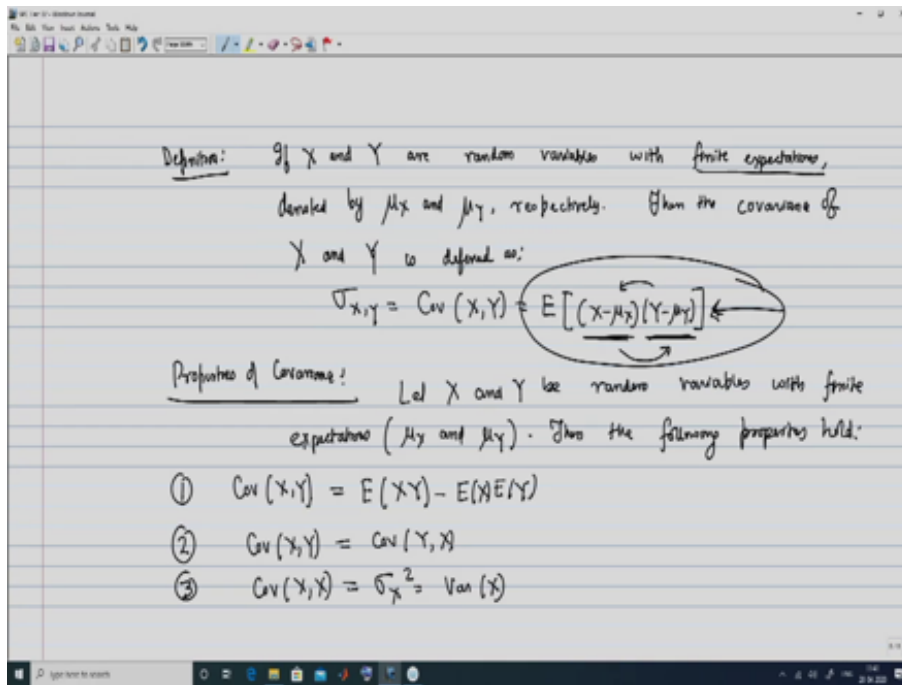 File Edit View Insert Actions Tools Help
Page Width
Definition: If X and Y are random variables with finite expectations,
denoted by μx and μy, respectively. Then the covariance of
X and Y is defined as:
σx,y = Cov (X,Y) = E[(X-μx)(Y-μy)]
Properties of Covariance: Let X and Y be random variables with finite
expectations (μx and μy). Then the following properties hold:
① Cov (X,Y) = E(XY) - E(X)E(Y)
② Cov (X,Y) = Cov (Y,X)
③ Cov (X,X) = σx² = Var (X)
Type here to search